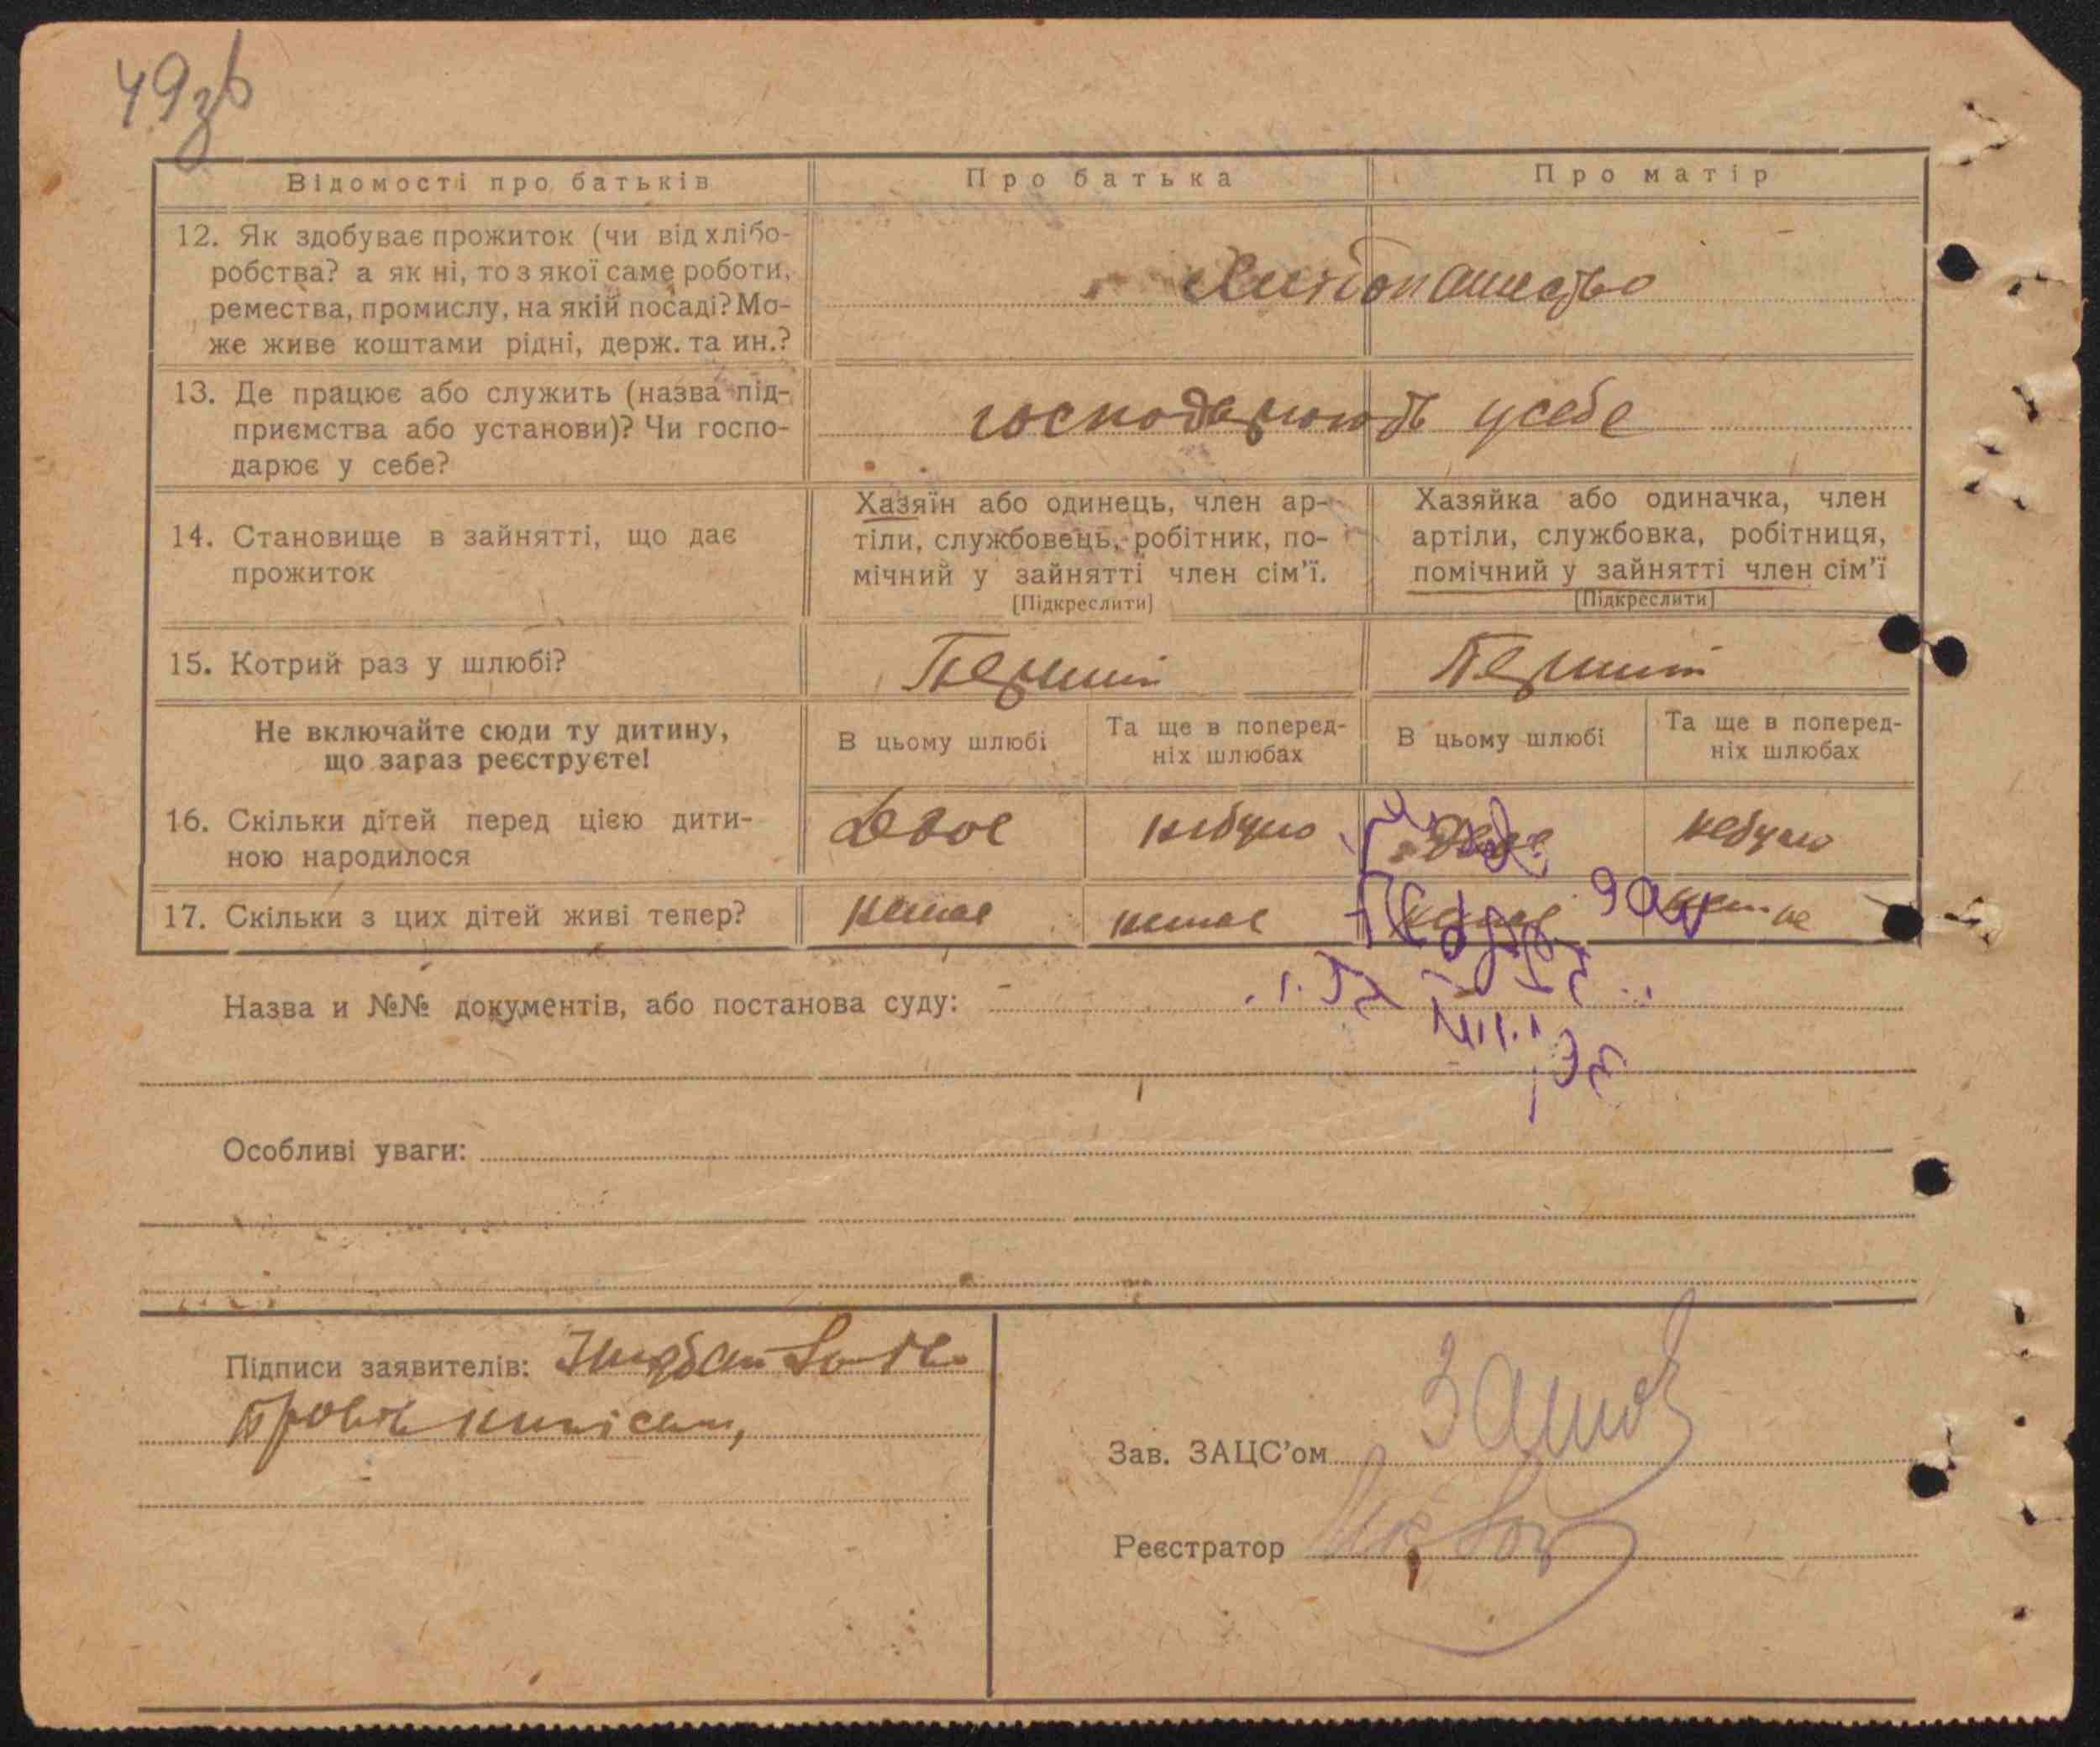 49зв
Відомості про батьків
Про батька
Про матір
12. Як здобуває прожиток (чи від хлібо-
робства? а як ні, то з якої саме роботи,
ремества, промислу, на якій посаді? Мо-
же живе коштами рідні, держ. та ин.?
13. Де працює або служить (назва під-
приємства або установи)? Чи госпо-
дарює у себе?
господарюють усебе
14. Становище в зайнятті, що дає
прожиток
Хазяїн або одинець, член ар-
тіли, службовець, робітник, по-
мічний у зайнятті член сім'ї.
[Підкреслити]
Хазяйка або одиначка, член
артіли, службовка, робітниця,
помічний у зайнятті член сім'ї
[Підкреслити]
15. Котрий раз у шлюбі?
Перший
Перший
Не включайте сюди ту дитину,
що зараз реєструєте!
В цьому шлюбі
Та ще в поперед-
ніх шлюбах
В цьому шлюбі
Та ще в поперед-
ніх шлюбах
16. Скільки дітей перед цією дити-
ною народилося
Двое
небуло
Двое
небуло
17. Скільки з цих дітей живі тепер?
немае
немае
немае
Назва и №№ документів, або постанова суду:
Особливі уваги:
Підписи заявителів:
Зав. ЗАЦС'ом
Реєстратор